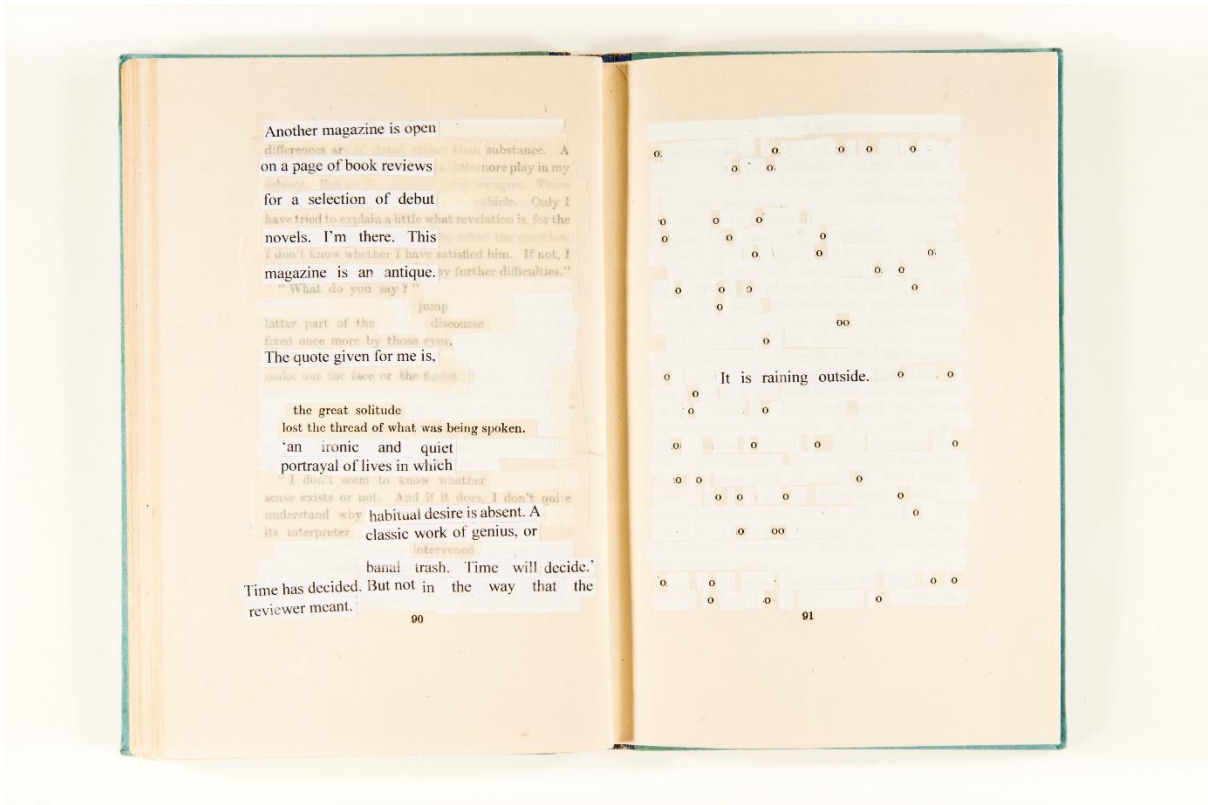 Another magazine is open
differences ar of detail rather than substance. A
on a page of book reviews more play in my
for a selection of debut vehicle. Only I
have tried to explain a little what revelation is, for the
novels. I'm there. This asked the question.
I don't know whether I have satisfied him. If not, I
magazine is an antique. further difficulties."
"What do you say?"
jump
latter part of the discourse
fixed once more by those eyes,
The quote given for me is,
make out the face or the figure.
the great solitude
lost the thread of what was being spoken.
'an ironic and quiet
portrayal of lives in which
"I don't seem to know whether
sense exists or not. And if it does, I don't quite
understand why habitual desire is absent. A
its interpreter classic work of genius, or
intervened
banal trash. Time will decide.'
Time has decided. But not in the way that the
reviewer meant.
90
o o o o o
o o
o o o
o o o
o o o
o o
o o o o
o
oo
o
o It is raining outside. o o
o
o o
o o o o
o o o
o o o o
o
o oo
o o o o
o o o
91